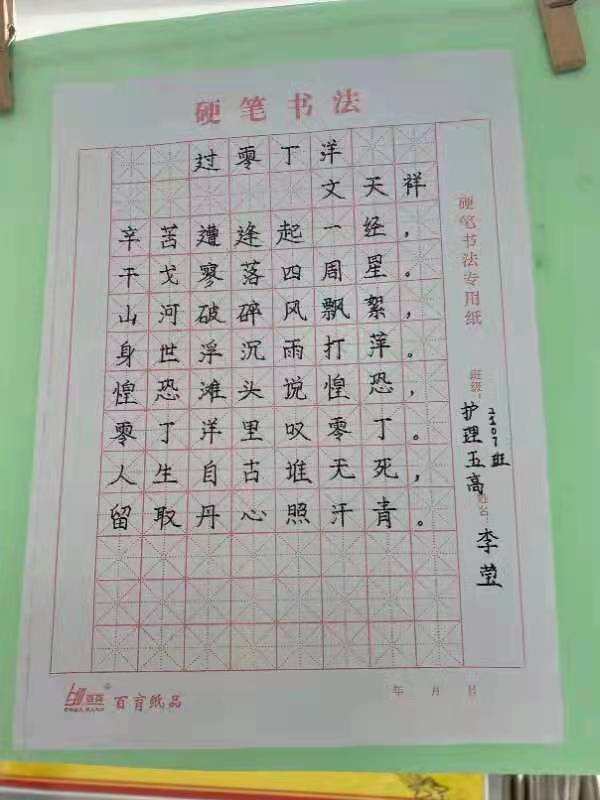 硬笔书法
过零丁洋
文天祥
辛苦遭逢起一经，
干戈寥落四周星。
山河破碎风飘絮，
身世浮沉雨打萍。
惶恐滩头说惶恐，
零丁洋里叹零丁。
人生自古堆无死，
留取丹心照汗青。
硬笔书法专用纸
班级：
护理五高
班
姓名：
李莹
百育纸品
年 月 日